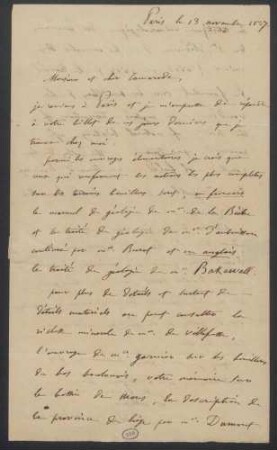 Paris le 13 novembre 1837
Monsieur et cher Camarade,
je reviens à Paris et je m'empresse de répondre
à votre billet de ces jours derniers que je
trouve chez moi
parmi les ouvrages élémentaires je crois que
ceux qui renferment les notions les plus complètes
sur les terrains houillers sont, en français
le manuel de géologie de mr. de la Bèche
et le traité de géologie de mr. D'aubuisson
continué par mr. Burat et en anglais
le traité de géologie de mr. Bakewell.
pour plus de détails et surtout de
détails matériels on peut consulter la
richesse minérale de mr. de Villefosse,
l'ouvrage de mr garnier sur les houillères
du bas boulonnais, votre mémoire sur
le bassin de Mons, la description de
la province de liège par mr Dumont